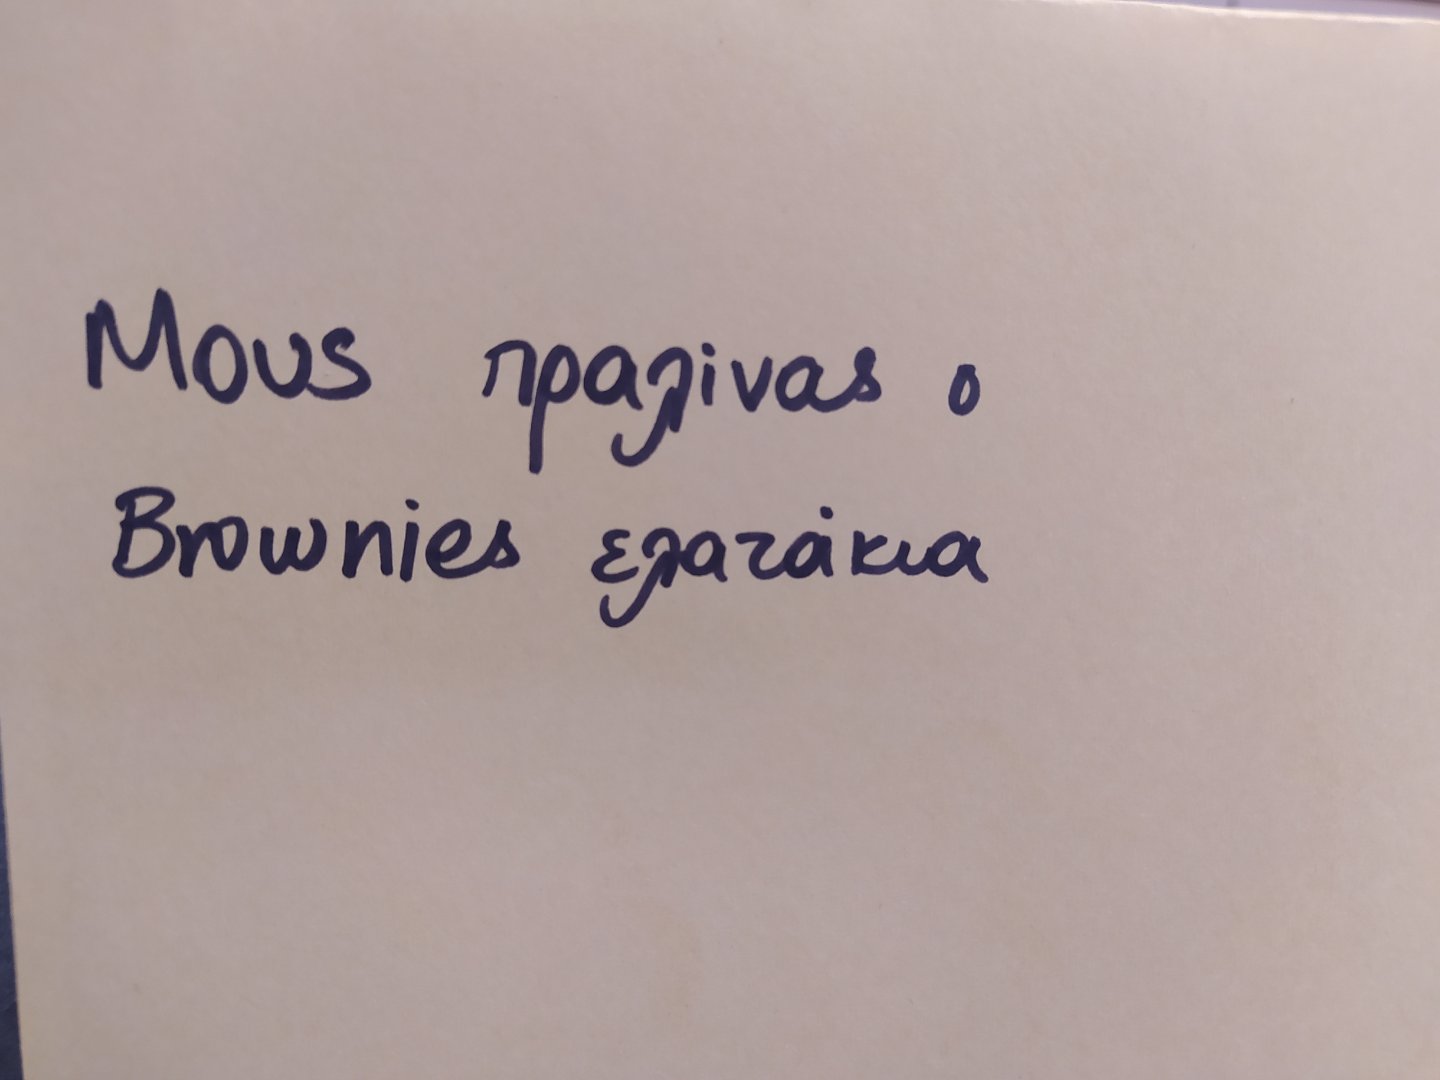 Μους πραλίνας ο
Brownies ελατάκια